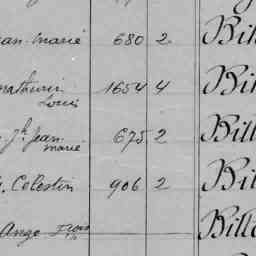 ean marie 680 2 Bih
mathurin Louis 1654 4 Bih
Jh Jean marie 675 2 Bill
Célestin 906 2 Bil
Ange Frois Bill